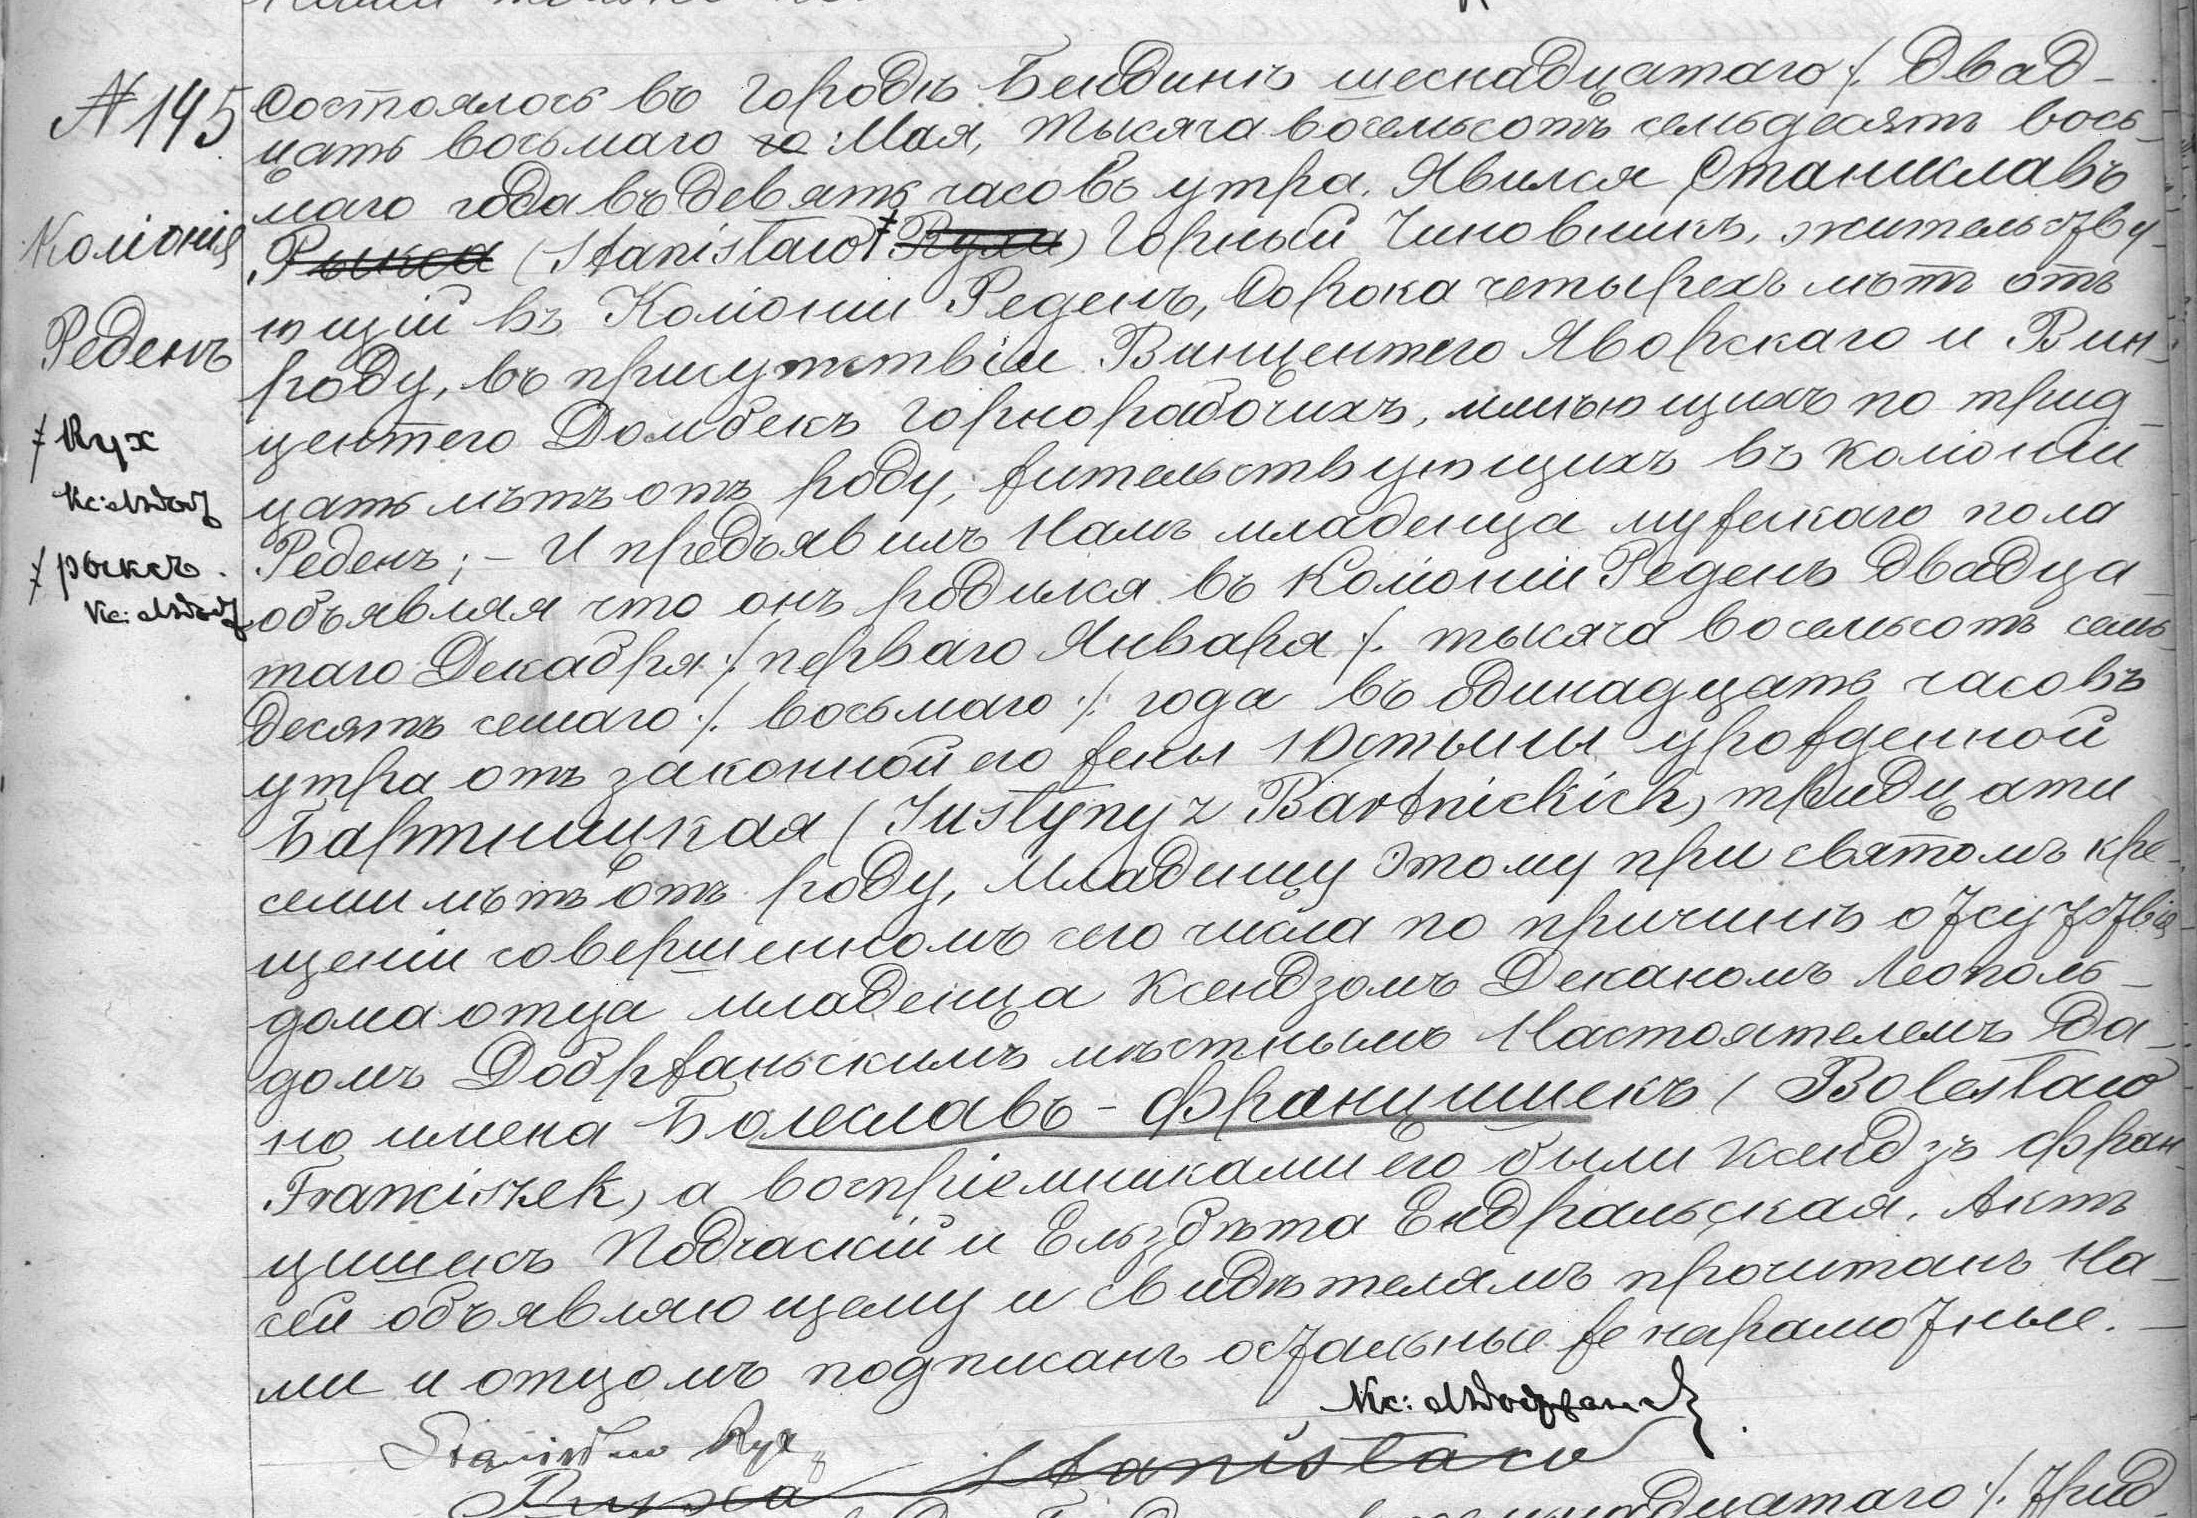 № 145
Колонія
Реденъ
Ryx
Рыксъ.
Состоялось въ городѣ Бендинѣ шеснадцатаго /. Двад-
цать восьмаго го : Мая, тысяча восемьсотъ семьдесятъ вось-
маго года въ девять часовъ утра. Явился Станиславъ
Рыкса (Stanisław Ryxa) Горный Чиновникъ, жительству-
ющій въ Колоніи Реденъ, Сорока четырехъ лѣтъ отъ
роду, въ присутствіи Винцентего Яворскаго и Вин-
центего Домбекъ Горнорабочихъ, имѣющихъ по трид-
цать лѣтъ отъ роду, жительствующихъ въ колоніи
Реденъ; – И предъявилъ Намъ младенца мужескаго пола
объявляя что онъ родился въ Колоніи Реденъ двадца-
таго Декабря /. перваго Января /. тысяча восемьсотъ семь-
десятъ семаго ./. восьмаго ./. года въ одинадцать часовъ
утра отъ законной его жены Юстыны урожденной
Бартницкая (Justyny z Bartnickich) тридцати
семи лѣтъ отъ роду, Младенцу этому при святомъ кре-
щеніи совершенномъ сего числа по причинѣ отсутствія
дома отца младенца Ксендзомъ Деканомъ Леополь-
домъ Добржаньскимъ мѣстнымъ Настоятелемъ Да-
но имена Болеславъ - Францишекъ (Bolesław
Franciszek) а воспріемниками его были Ксендзъ Фран-
цишекъ Подчаскій и Ельзбѣта Ендральская. Актъ
сей объявляющему и свидѣтелямъ прочитанъ На-
ми и отцомъ подписанъ остальные же неграмотные. –
Stanisław Ryx
Ryxa Stanisław